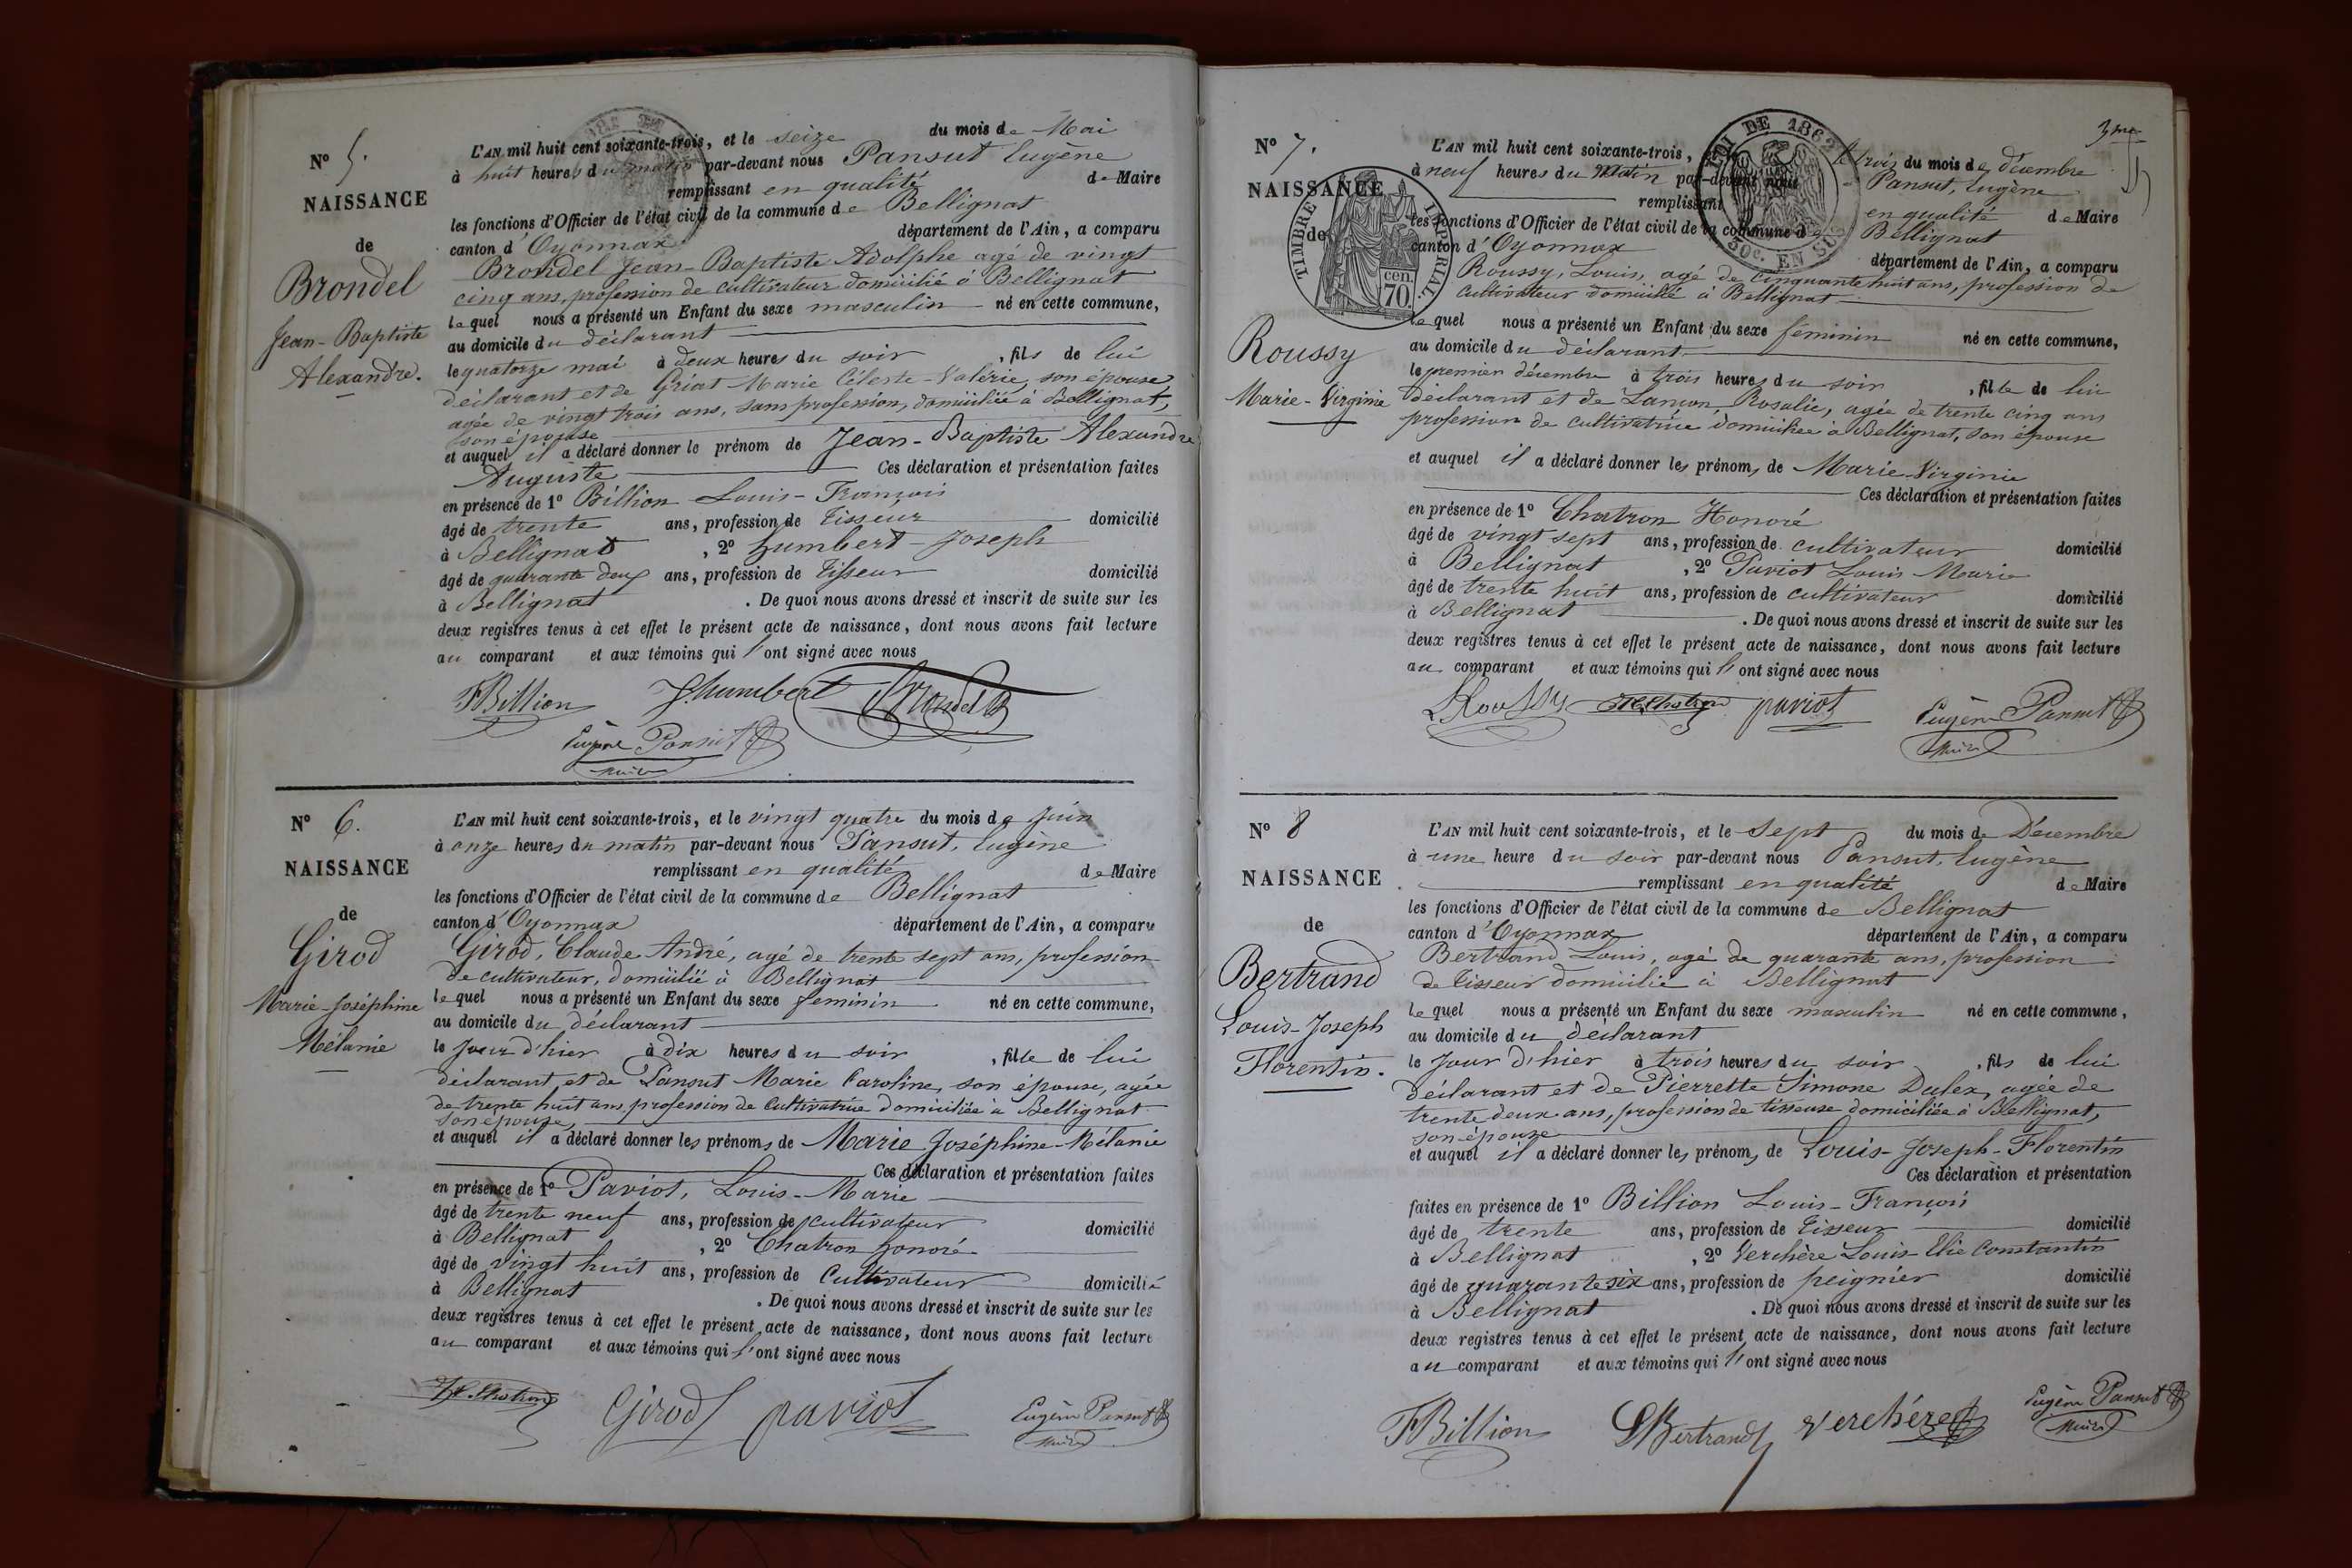 N° 5.
NAISSANCE
de
Brondel
Jean-Baptiste
Alexandre.
L'AN mil huit cent soixante-trois, et le seize du mois de Mai
à huit heures du matin par-devant nous Pansut Eugène
remplissant en qualité de Maire
les fonctions d'Officier de l'état civil de la commune de Bellignat
canton d'Oyonnax département de l'Ain, a comparu
Brondel Jean-Baptiste Adolphe agé de vingt
cinq ans, profession de cultivateur domicilié à Bellignat
lequel nous a présenté un Enfant du sexe masculin né en cette commune,
au domicile du déclarant
le quatorze mai à deux heures du soir, fils de lui
déclarant et de Griat Marie Céleste-Valérie, son épouse,
agée de vingt trois ans, sans profession, domiciliée à Bellignat,
son épouse
et auquel il a déclaré donner le prénom de Jean-Baptiste Alexandre
Auguste Ces déclaration et présentation faites
en présence de 1° Billion Louis-François
âgé de trente ans, profession de Tisseur domicilié
à Bellignat, 2° Humbert-Joseph
âgé de quarante deux ans, profession de Tisseur domicilié
à Bellignat. De quoi nous avons dressé et inscrit de suite sur les
deux registres tenus à cet effet le présent acte de naissance, dont nous avons fait lecture
au comparant et aux témoins qui l'ont signé avec nous
FBillion J. humbert Brondel B
Eugène Pansut
Maire
N° 6.
NAISSANCE
de
Girod
Marie-Joséphine
Mélanie
L'AN mil huit cent soixante-trois, et le vingt quatre du mois de Juin
à onze heures du matin par-devant nous Pansut, Eugène
remplissant en qualité de Maire
les fonctions d'Officier de l'état civil de la commune de Bellignat
canton d'Oyonnax département de l'Ain, a comparu
Girod, Claude André, agé de trente sept ans, profession
de cultivateur, domicilié à Bellignat
lequel nous a présenté un Enfant du sexe féminin né en cette commune,
au domicile du déclarant
le Jour d'hier à dix heures du soir, fille de lui
déclarant et de Pansut Marie Caroline, son épouse, agée
de trente huit ans, profession de Cultivatrice domiciliée à Bellignat
son épouse,
et auquel il a déclaré donner les prénoms de Marie Joséphine-Mélanie
Ces déclaration et présentation faites
en présence de 1° Paviot, Louis-Marie
âgé de trente neuf ans, profession de cultivateur domicilié
à Bellignat, 2° Chatron honoré
âgé de vingt huit ans, profession de Cultivateur domicilié
à Bellignat. De quoi nous avons dressé et inscrit de suite sur les
deux registres tenus à cet effet le présent acte de naissance, dont nous avons fait lecture
au comparant et aux témoins qui l'ont signé avec nous
H. Chatron Girod paviot Eugène Pansut
Maire
3me
N° 7.
NAISSANCE
de
Roussy
Marie-Virginie
TIMBRE IMPÉRIAL.
70 cen.
LOI DE 1862
50c. EN SUS
L'AN mil huit cent soixante-trois, et le trois du mois de décembre
à neuf heures du Matin par-devant nous Pansut, Eugène
remplissant en qualité de Maire
les fonctions d'Officier de l'état civil de la commune de Bellignat
canton d'Oyonnax département de l'Ain, a comparu
Roussy, Louis, agé de cinquante huit ans, profession de
Cultivateur domicilié à Bellignat
lequel nous a présenté un Enfant du sexe féminin né en cette commune,
au domicile du déclarant
le premier décembre à trois heures du soir, fille de lui
déclarant et de Lançon, Rosalie, agée de trente cinq ans
profession de cultivatrice domiciliée à Bellignat, son épouse
et auquel il a déclaré donner les prénoms de Marie-Virginie
Ces déclaration et présentation faites
en présence de 1° Chatron Honoré
âgé de vingt sept ans, profession de cultivateur domicilié
à Bellignat, 2° Paviot Louis Marie
âgé de trente huit ans, profession de cultivateur domicilié
à Bellignat. De quoi nous avons dressé et inscrit de suite sur les
deux registres tenus à cet effet le présent acte de naissance, dont nous avons fait lecture
au comparant et aux témoins qui l'ont signé avec nous
LRoussy H Chatron paviot Eugène Pansut
Maire
N° 8
NAISSANCE
de
Bertrand
Louis-Joseph
Florentin.
L'AN mil huit cent soixante-trois, et le Sept du mois de Décembre
à une heure du soir par-devant nous Pansut, Eugène
remplissant en qualité de Maire
les fonctions d'Officier de l'état civil de la commune de Bellignat
canton d'Oyonnax département de l'Ain, a comparu
Bertrand Louis, agé de quarante ans, profession
de Tisseur domicilié à Bellignat
lequel nous a présenté un Enfant du sexe masculin né en cette commune,
au domicile du déclarant
le Jour d'hier à trois heures du soir, fils de lui
déclarant et de Pierrette Simone Dulex, agée de
trente deux ans, profession de tisseuse domiciliée à Bellignat,
son épouse
et auquel il a déclaré donner les prénoms de Louis-Joseph-Florentin
Ces déclaration et présentation
faites en présence de 1° Billion Louis-François
âgé de trente ans, profession de Tisseur domicilié
à Bellignat, 2° Verchère Louis-Elie Constantin
âgé de quarante six ans, profession de peignier domicilié
à Bellignat. De quoi nous avons dressé et inscrit de suite sur les
deux registres tenus à cet effet le présent acte de naissance, dont nous avons fait lecture
au comparant et aux témoins qui l'ont signé avec nous
FBillion LBertrand Verchère Eugène Pansut
Maire